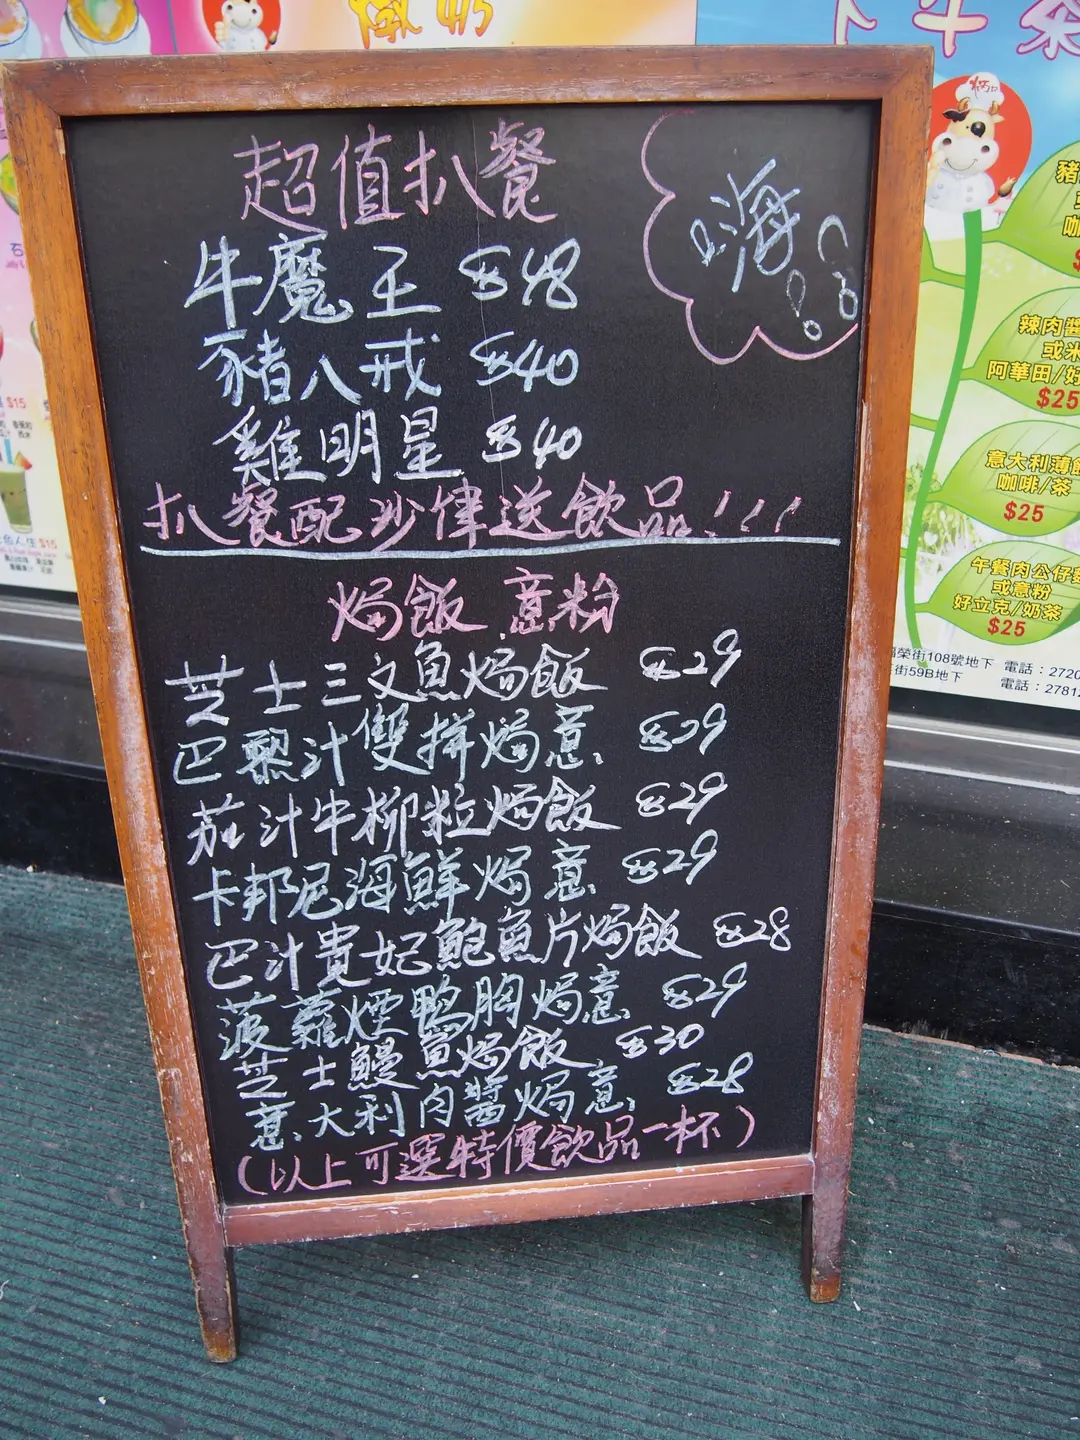 超值扒餐
嗨!!
牛魔王 $48
豬八戒 $40
雞明星 $40
扒餐配沙律送飲品!!!
焗飯 意粉
芝士三文魚焗飯 $29
巴黎汁雙拼焗意 $29
茄汁牛柳粒焗飯 $29
卡邦尼海鮮焗意 $29
巴汁貴妃鮑魚片焗飯 $28
菠蘿煙鴨胸焗意 $29
芝士鰻魚焗飯 $30
意大利肉醬焗意 $28
(以上可選特價飲品一杯)
$15
$15
辣肉醬
或米
阿華田/好
$25
意大利薄餅
咖啡/茶
$25
午餐肉公仔麵
或意粉
好立克/奶茶
$25
榮街108號地下 電話:2720
街59B地下 電話:2781